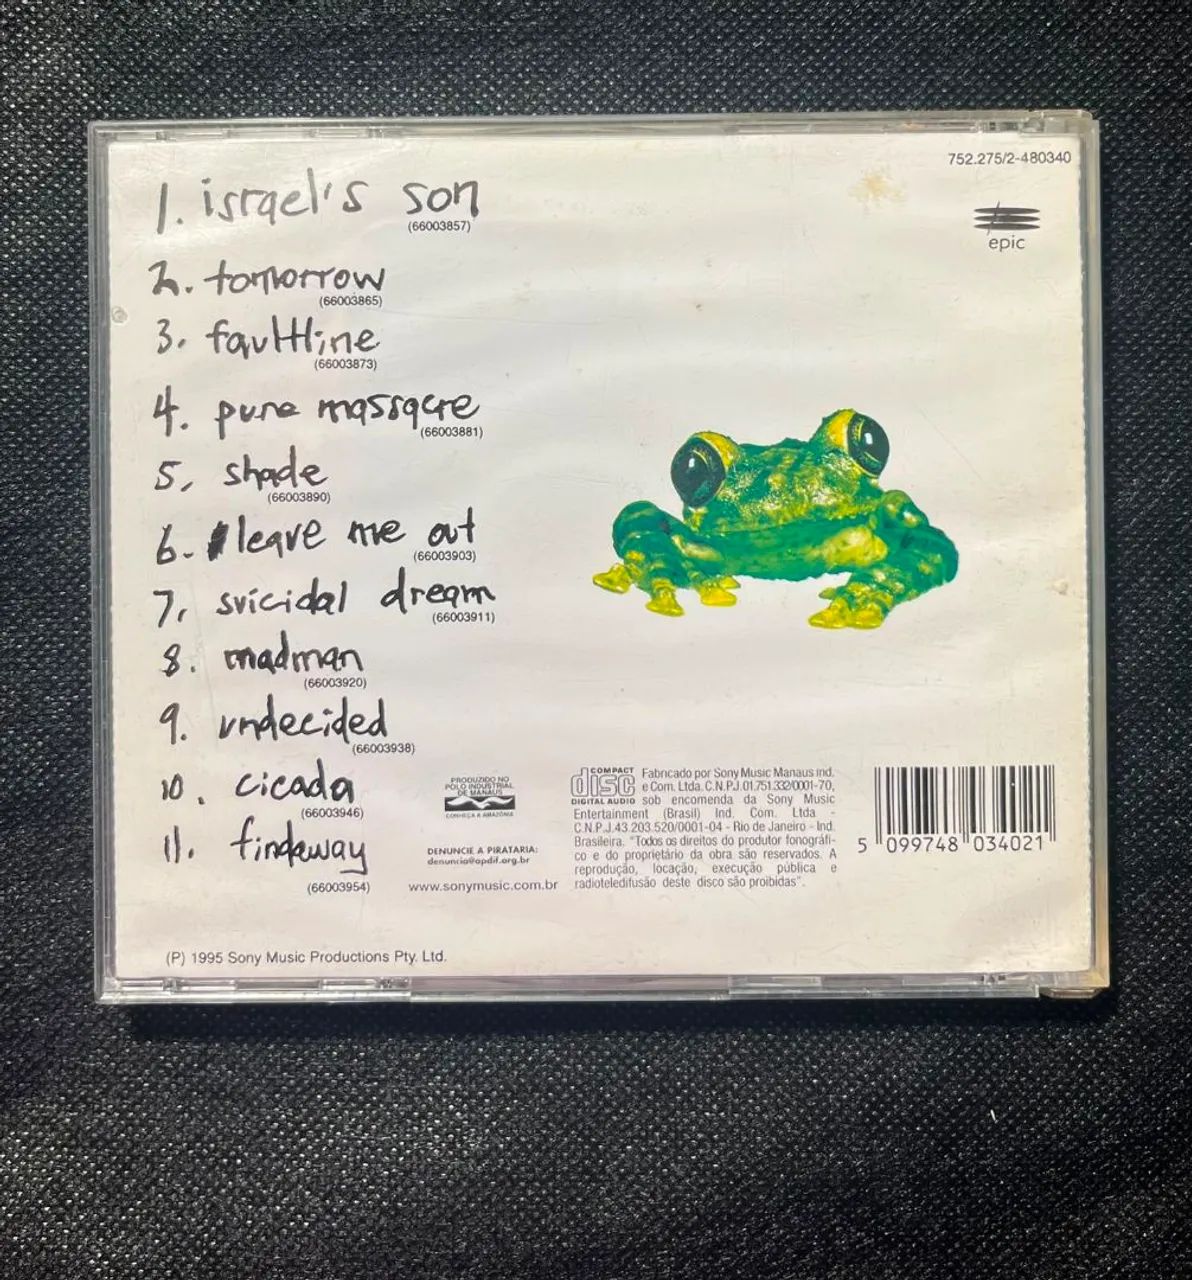 752.275/2-480340
epic
1. israel's son
(66003857)
2. tomorrow
(66003865)
3. faultline
(66003873)
4. pure massacre
(66003881)
5. shade
(66003890)
6. leave me out
(66003903)
7. suicidal dream
(66003911)
8. madman
(66003920)
9. undecided
(66003938)
10. cicada
(66003946)
11. findaway
(66003954)
PRODUZIDO NO
PÓLO INDUSTRIAL
DE MANAUS
CONHEÇA A AMAZÔNIA
DENUNCIE A PIRATARIA:
denuncia@apdif.org.br
www.sonymusic.com.br
COMPACT
disc
DIGITAL AUDIO
Fabricado por Sony Music Manaus ind.
e Com. Ltda. C.N.P.J. 01.751.332/0001-70,
sob encomenda da Sony Music
Entertainment (Brasil) Ind. Com. Ltda -
C.N.P.J.43.203.520/0001-04 - Rio de Janeiro - Ind.
Brasileira. "Todos os direitos do produtor fonográfi-
co e do proprietário da obra são reservados. A
reprodução, locação, execução pública e
radioteledifusão deste disco são proibidas".
5 099748 034021
(P) 1995 Sony Music Productions Pty. Ltd.